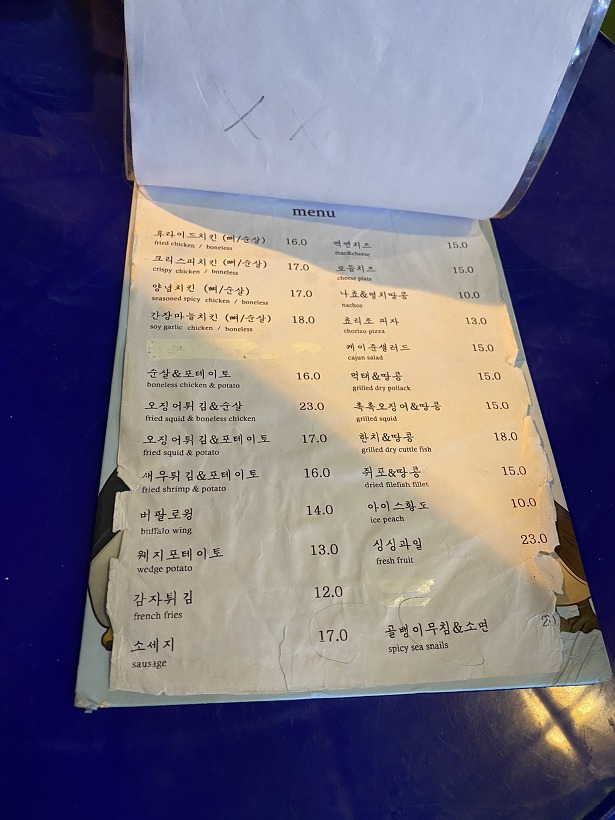 menu
후라이드치킨 (뼈/순살) 16.0
fried chicken / boneless
크리스피치킨 (뼈/순살) 17.0
crispy chicken / boneless
양념치킨 (뼈/순살) 17.0
seasoned spicy chicken / boneless
간장마늘치킨 (뼈/순살) 18.0
soy garlic chicken / boneless
순살&포테이토 16.0
boneless chicken & potato
오징어튀김&순살 23.0
fried squid & boneless chicken
오징어튀김&포테이토 17.0
fried squid & potato
새우튀김&포테이토 16.0
fried shrimp & potato
버팔로윙 14.0
buffalo wing
웨지포테이토 13.0
wedge potato
감자튀김 12.0
french fries
소세지 17.0
sausage
맥앤치즈 15.0
mac&cheese
모듬치즈 15.0
cheese plate
나쵸&멸치땅콩 10.0
nachos
쵸리조 피자 13.0
chorizo pizza
케이준샐러드 15.0
cajun salad
먹태&땅콩 15.0
grilled dry pollack
촉촉오징어&땅콩 15.0
grilled squid
한치&땅콩 18.0
grilled dry cuttle fish
쥐포&땅콩 15.0
dried filefish fillet
아이스황도 10.0
ice peach
싱싱과일 23.0
fresh fruit
골뱅이무침&소면
spicy sea snails